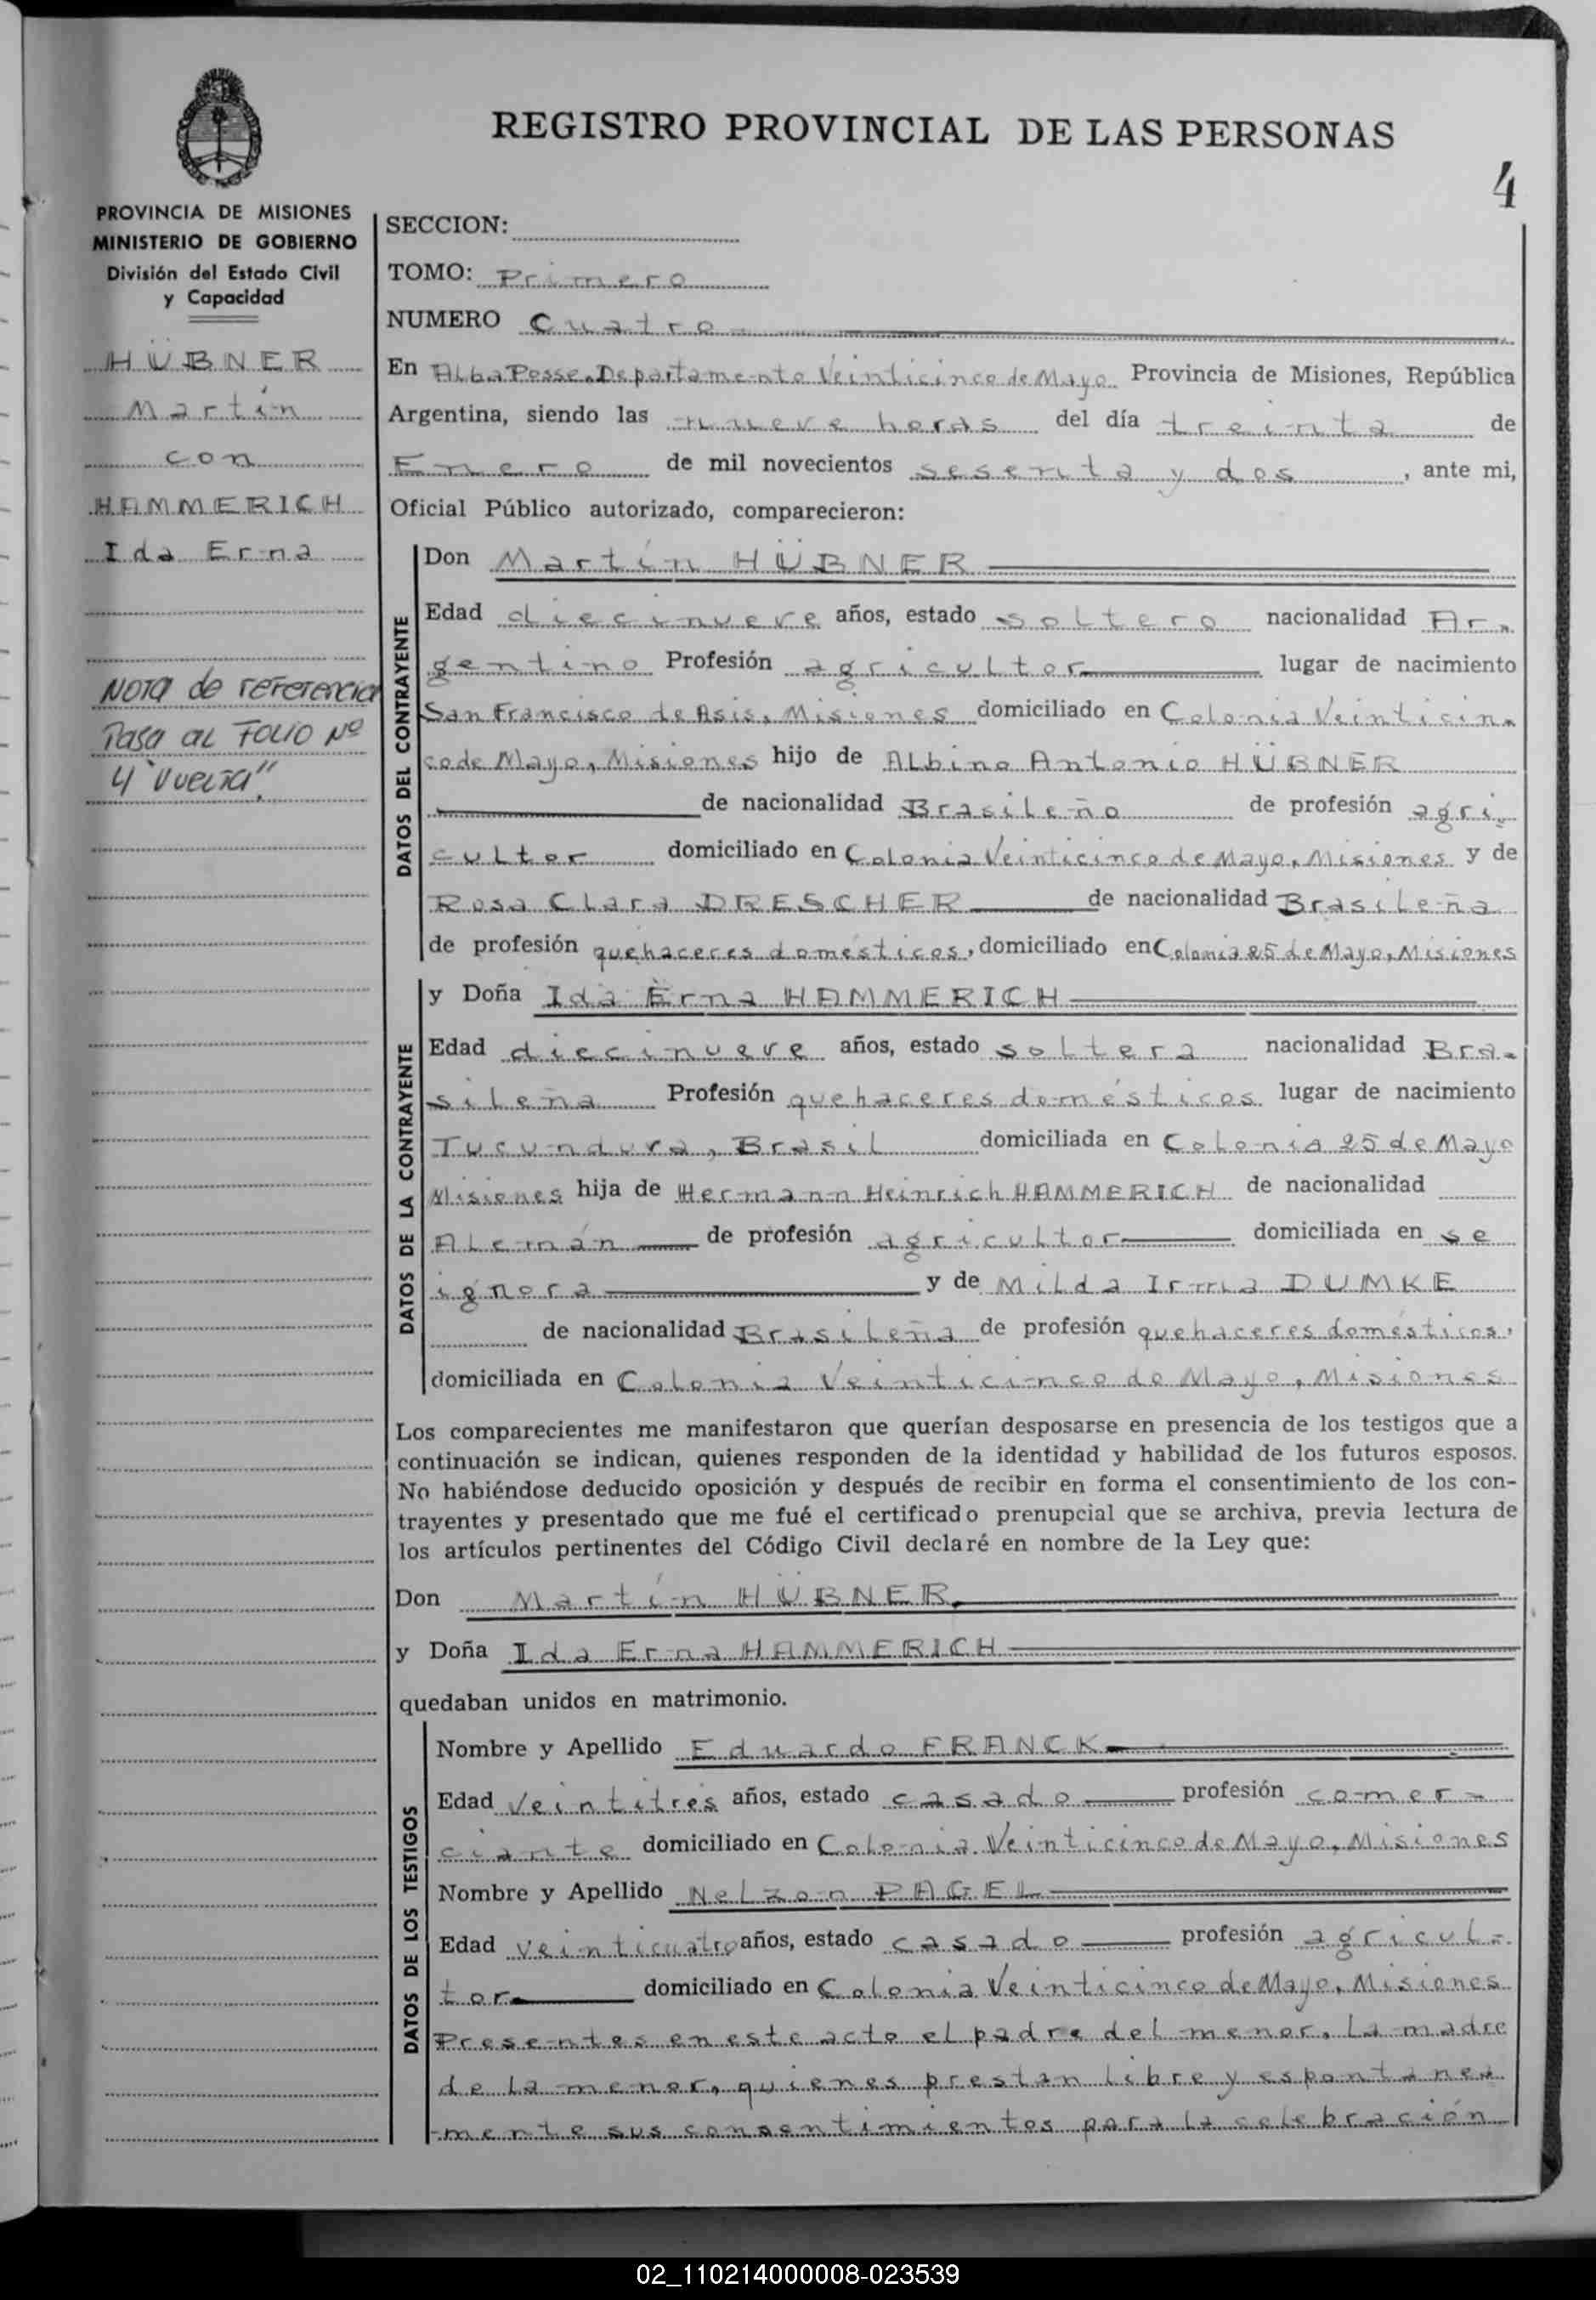 REGISTRO PROVINCIAL DE LAS PERSONAS
4
PROVINCIA DE MISIONES
MINISTERIO DE GOBIERNO
División del Estado Civil
y Capacidad
HÜBNER
Martín
con
HAMMERICH
Ida Erna
Nota de referencia
Pasa al Folio Nº
4 "vuelta".
SECCION:
TOMO: Primero
NUMERO Cuatro
En Alba Posse, Departamento Veinticinco de Mayo Provincia de Misiones, República
Argentina, siendo las nueve horas del día treinta de
Enero de mil novecientos sesenta y dos, ante mi,
Oficial Público autorizado, comparecieron:
DATOS DEL CONTRAYENTE
Don Martín HÜBNER
Edad diecinueve años, estado soltero nacionalidad Ar-
gentino Profesión agricultor lugar de nacimiento
San Francisco de Asis, Misiones domiciliado en Colonia Veinticin-
co de Mayo, Misiones hijo de Albino Antonio HÜBNER
de nacionalidad Brasileño de profesión agri-
cultor domiciliado en Colonia Veinticinco de Mayo, Misiones y de
Rosa Clara DRESCHER de nacionalidad Brasileña
de profesión quehaceres domésticos, domiciliado en Colonia 25 de Mayo, Misiones
DATOS DE LA CONTRAYENTE
y Doña Ida Erna HAMMERICH
Edad diecinueve años, estado soltera nacionalidad Bra-
sileña Profesión quehaceres domésticos lugar de nacimiento
Tucunduva, Brasil domiciliada en Colonia 25 de Mayo
Misiones hija de Hermann Heinrich HAMMERICH de nacionalidad
Alemán de profesión agricultor domiciliada en se
ignora y de Milda Irma DUMKE
de nacionalidad Brasileña de profesión quehaceres domésticos,
domiciliada en Colonia Veinticinco de Mayo, Misiones
Los comparecientes me manifestaron que querían desposarse en presencia de los testigos que a
continuación se indican, quienes responden de la identidad y habilidad de los futuros esposos.
No habiéndose deducido oposición y después de recibir en forma el consentimiento de los con-
trayentes y presentado que me fué el certificado prenupcial que se archiva, previa lectura de
los artículos pertinentes del Código Civil declaré en nombre de la Ley que:
Don Martín HÜBNER
y Doña Ida Erna HAMMERICH
quedaban unidos en matrimonio.
DATOS DE LOS TESTIGOS
Nombre y Apellido Eduardo FRANCK
Edad veintitrés años, estado casado profesión comer-
ciante domiciliado en Colonia Veinticinco de Mayo, Misiones
Nombre y Apellido Nelzon PAGEL
Edad veinticuatro años, estado casado profesión agricul-
tor domiciliado en Colonia Veinticinco de Mayo, Misiones
Presentes en este acto el padre del menor, la madre
de la menor, quienes prestan libre y espontanea
mente sus consentimientos para la celebración
02_110214000008-023539